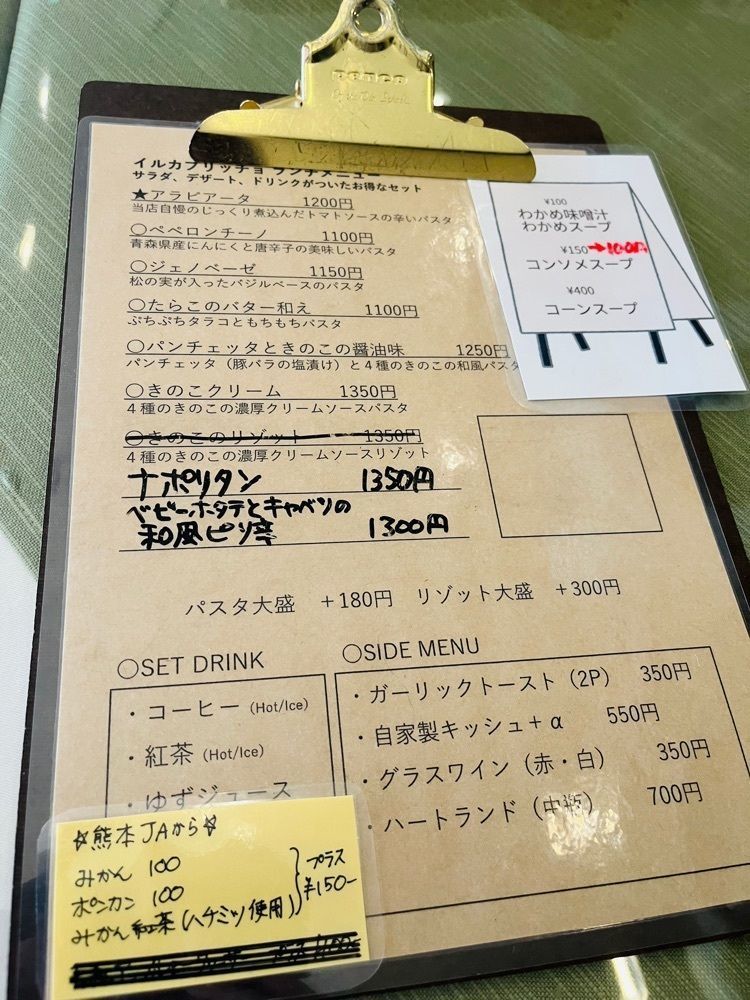 penco
イルカプリッチョ ランチメニュー
サラダ、デザート、ドリンクがついたお得なセット
★アラビアータ 1200円
当店自慢のじっくり煮込んだトマトソースの辛いパスタ
○ペペロンチーノ 1100円
青森県産にんにくと唐辛子の美味しいパスタ
○ジェノベーゼ 1150円
松の実が入ったバジルベースのパスタ
○たらこのバター和え 1100円
ぷちぷちタラコともちもちパスタ
○パンチェッタときのこの醤油味 1250円
パンチェッタ（豚バラの塩漬け）と４種のきのこの和風パスタ
○きのこクリーム 1350円
４種のきのこの濃厚クリームソースパスタ
○きのこのリゾット 1350円
４種のきのこの濃厚クリームソースリゾット
ナポリタン 1350円
ベビーホタテとキャベツの
和風ピリ辛 1300円
¥100
わかめ味噌汁
わかめスープ
¥150→100円
コンソメスープ
¥400
コーンスープ
パスタ大盛 +180円 リゾット大盛 +300円
○SET DRINK
・コーヒー (Hot/Ice)
・紅茶 (Hot/Ice)
・ゆずジュース
○SIDE MENU
・ガーリックトースト（2P） 350円
・自家製キッシュ+α 550円
・グラスワイン（赤・白） 350円
・ハートランド（中瓶） 700円
☆熊本JAから☆
みかん 100
ポンカン 100
みかん紅茶(ハチミツ使用)
プラス
¥150-